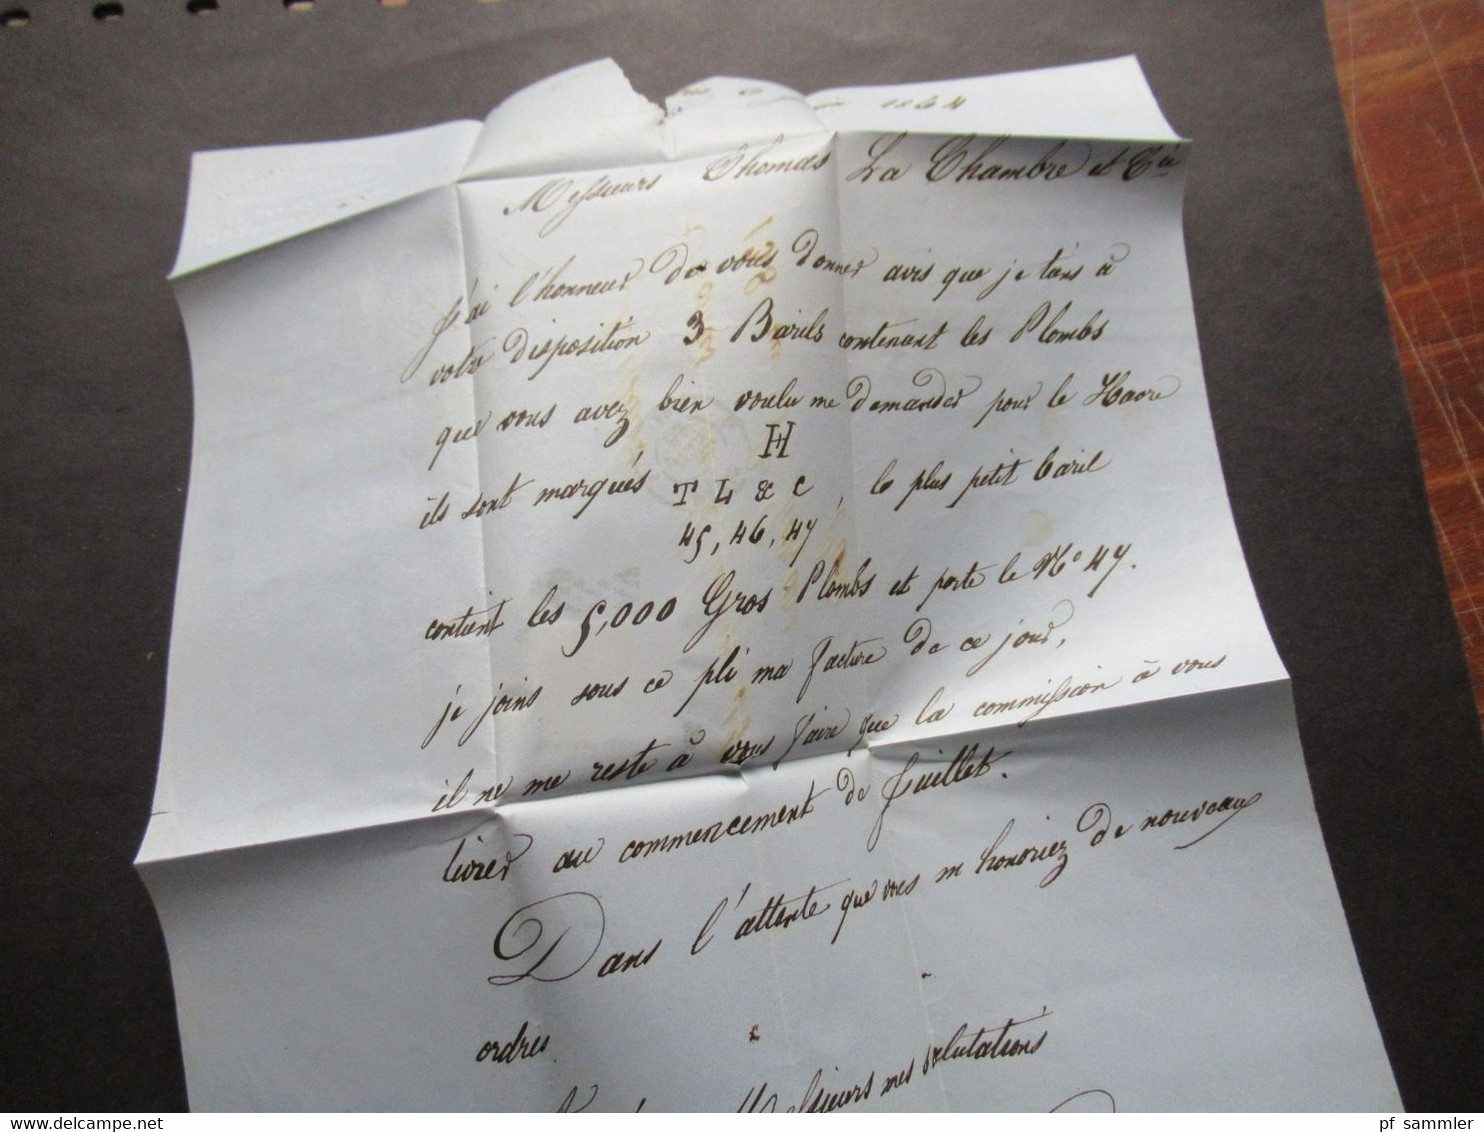 1864
Messieurs Thomas La Chambre et Cie
J'ai l'honneur de vous donner avis que je tiens à
votre disposition 3 Barils contenant les Plombs
que vous avez bien voulu me demander pour le Havre
H
ils sont marqués T L & C, le plus petit baril
45, 46, 47
contient les 5,000 Gros Plombs et porte le No 47.
je joins sous ce pli ma facture de ce jour,
il ne me reste à vous faire que la commission à vous
livrer au commencement de Juillet.
Dans l'attente que vous m'honoriez de nouveaux
ordres
Messieurs mes salutations
pf_sammler